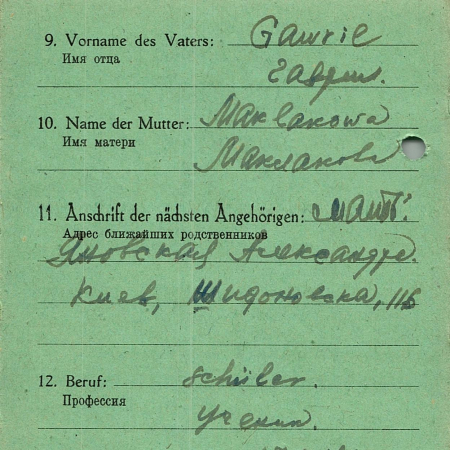 9. Vorname des Vaters: Gawril
Имя отца
Гаврил.
10. Name der Mutter: Maklakowa
Имя матери
Маклакова
11. Anschrift der nächsten Angehörigen: мать:
Адрес ближайших родственников
Яновская Александра.
Киев,
12. Beruf: Schüler.
Профессия
Ученик.